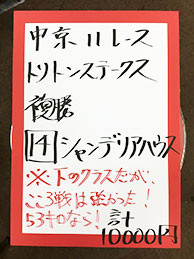 中京11レース
トリトンステークス
複勝
14 シャンデリアハウス
※下のクラスだが、
ここ3戦は強かった!
53キロなら! 計
10000円